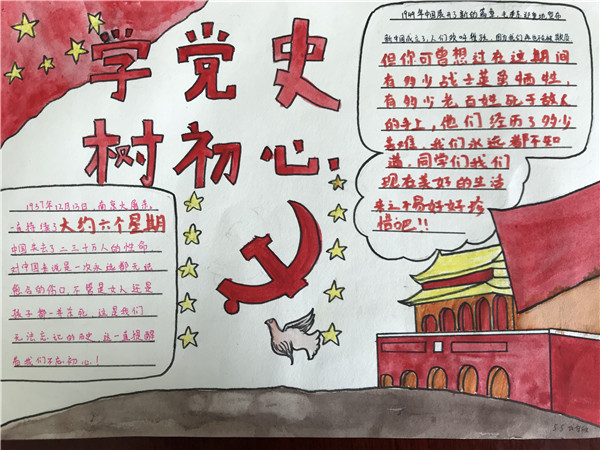 学党史
树初心.
1949年中国
新中国成立了,人们欢呼
但你可曾想过在这期间
有多少战士英勇牺牲,
有多少老百姓死于敌人
的手上,他们经历了多少
苦难,我们永远都不知
道,同学们我们
现在美好的生活
来之不易好好珍
惜吧!!
1937年12月13日,南京大屠杀,
一直持续了大约六个星期
中国失去了二三十万人的性命
对中国来说是一次永远都无法
愈合的伤口,不管是女人还是
孩子都一并杀死,这是我们
无法忘记的历史,这一直提醒
着我们不忘初心!
5.5